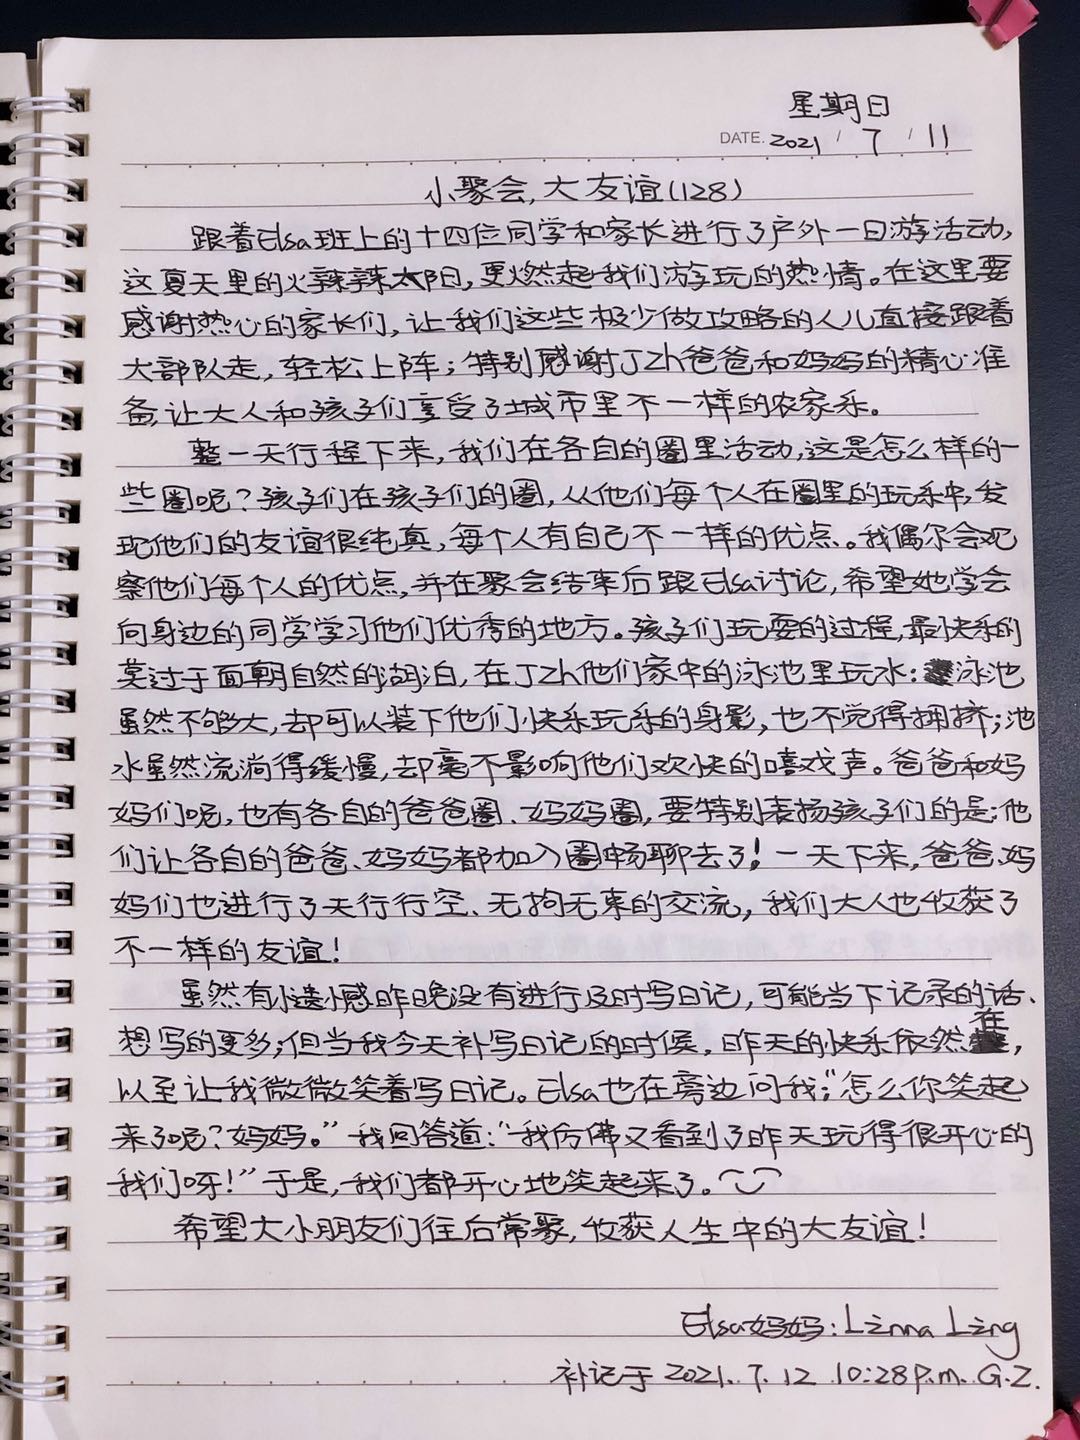 星期日
DATE. 2021 / 7 / 11
小聚会,大友谊(128)
跟着Elsa班上的十四位同学和家长进行了户外一日游活动,
这夏天里的火辣辣太阳,更燃起我们游玩的热情。在这里要
感谢热心的家长们,让我们这些极少做攻略的人儿直接跟着
大部队走,轻松上阵;特别感谢JZh爸爸和妈妈的精心准
备,让大人和孩子们享受了城市里不一样的农家乐。
整一天行程下来,我们在各自的圈里活动,这是怎么样的一
些圈呢?孩子们在孩子们的圈,从他们每个人在圈里的玩乐中,发
现他们的友谊很纯真,每个人有自己不一样的优点。我偶尔会观
察他们每个人的优点,并在聚会结束后跟Elsa讨论,希望她学会
向身边的同学学习他们优秀的地方。孩子们玩耍的过程,最快乐的
莫过于面朝自然的湖泊,在JZh他们家中的泳池里玩水:泳池
虽然不够大,却可以装下他们快乐玩乐的身影,也不觉得拥挤;池
水虽然流淌得缓慢,却毫不影响他们欢快的嘻戏声。爸爸和妈
妈们呢,也有各自的爸爸圈、妈妈圈,要特别表扬孩子们的是:他
们让各自的爸爸、妈妈都加入圈畅聊去了!一天下来,爸爸、妈
妈们也进行了天行行空、无拘无束的交流,我们大人也收获了
不一样的友谊!
虽然有小遗憾昨晚没有进行及时写日记,可能当下记录的话、
想写的更多;但当我今天补写日记的时候,昨天的快乐依然在,
以至让我微微笑着写日记。Elsa也在旁边问我:“怎么你笑起
来了呢?妈妈。”我回答道:“我仿佛又看到了昨天玩得很开心的
我们呀!”于是,我们都开心地笑起来了。
希望大小朋友们往后常聚,收获人生中的大友谊!
Elsa妈妈:Linna Ling
补记于 2021.7.12 10:28P.m. G.Z.